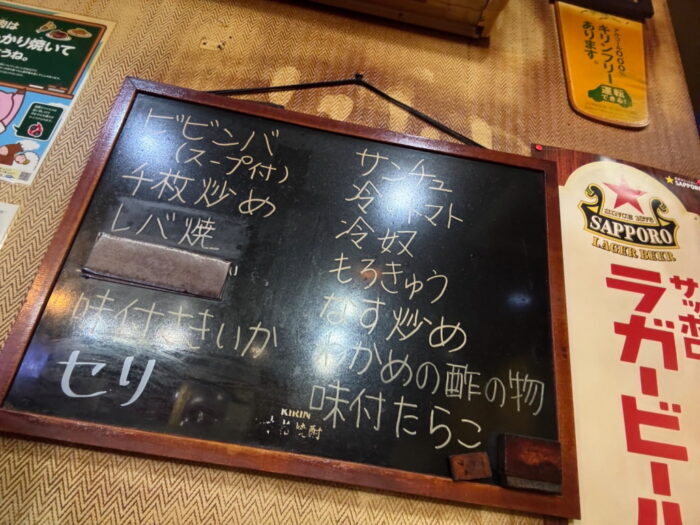 かり焼いて
うね。
ビビンバ
(スープ付)
千枚炒め
レバ焼
味付さきいか
セリ
サンチュ
冷トマト
冷奴
もろきゅう
なす炒め
わかめの酢の物
味付たらこ
KIRIN
焼酎
キリンフリー
あります。
運転
できる!
SAPPORO
SAPPORO
LAGER BEER
サッポロ
ラガービール